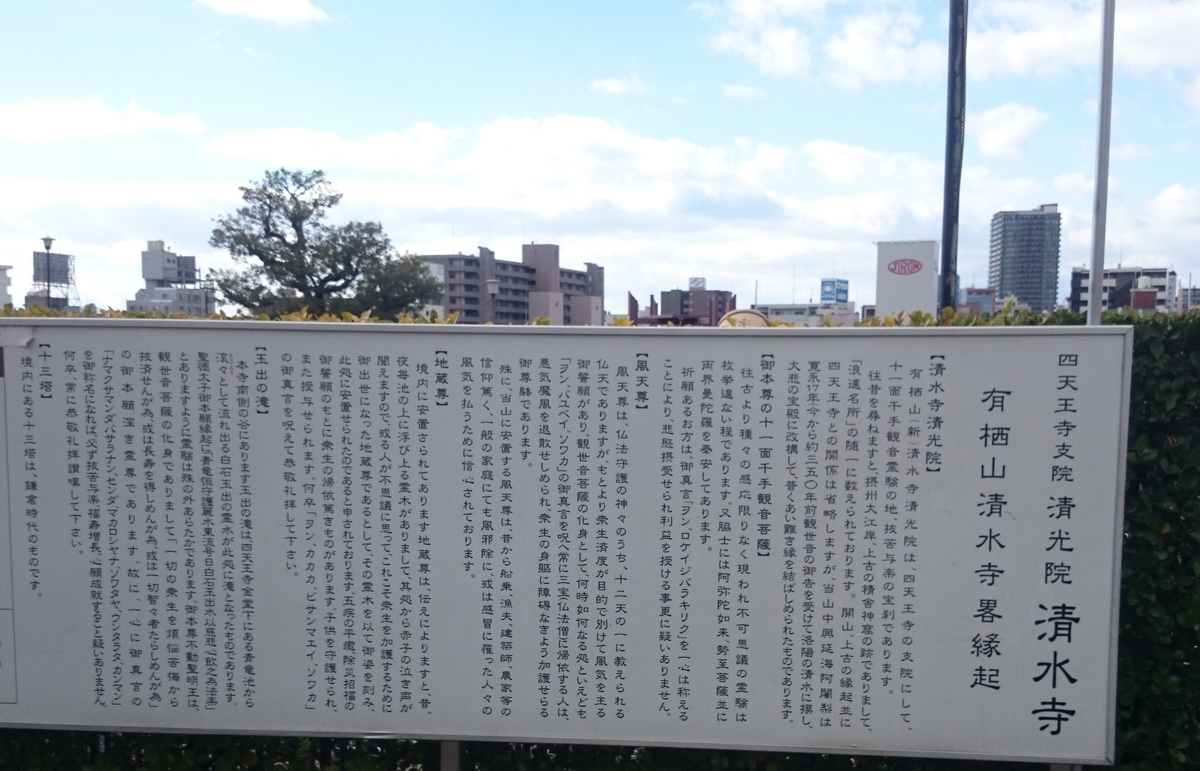 四天王寺支院 清光院 清水寺
有栖山清水寺畧縁起
【清水寺清光院】
有栖山(新)清水寺清光院は、四天王寺の支院にして、
十一面千手観音霊験の地、抜苦与楽の宝刹であります。
往昔を尋ねますと、摂州大江岸、上古の精舎神窟の跡でありまして、
「浪速名所」の随一に数えられております。開山、上古の縁起並に
四天王寺との関係は省略しますが、当山中興延海阿闍梨は
寛永7年今から約三五〇年前観世音の御告を受けて洛陽の清水に摸し、
大悲の宝殿に改構して普くあい難き縁を結ばしめられたものであります。
【御本尊の十一面千手観音菩薩】
往古より種々の感応限りなく現われ不可思議の霊験は
枚挙に遑ない程であります。又脇士には阿弥陀如来、勢至菩薩並に
両界曼陀羅を奉安してあります。
祈願あるお方は、御真言「ヲン、ロケイジバラキリク」を一心に称える
ことにより、悲愍摂受せられ利益を授ける事更に疑いありません。
【風天尊】
風天尊は、仏法守護の神々のうち、十二天の一に教えられる
仏天でありますが、もとより衆生済度が目的で別けて風気を主る
御誓願があり、観世音菩薩の御化身として、何時如何なる処といえども
「ヲン、バユベイ、ソワカ」の御真言を呪へ常に三宝(仏法僧)に帰依する人は、
悪気魔風を退散せしめられ、衆生の身軀に障碍なきよう加護せらる
御尊躰であります。
殊に、当山に安置する風天尊は、昔から船乗、漁夫、建築師、農家等の
信仰篤く、一般の家庭にても風邪除に、或は感冒に罹った人々の
風気を払うために信心されております。
【地蔵尊】
境内に安置さられてあります地蔵尊は、伝えによりますと、昔、
夜毎池の上に浮び上る霊木がありまして、其処から赤子の泣き声が
聞えますので、或る人が不思議に思って、これこそ衆生を加護するために
御出世になった地蔵尊であるとして、その霊木を以て御姿を刻み、
此処に安置せられたのであると申されております。五疾の平癒、除災招福の
御誓願のもとに衆生の帰依篤きものがあります。子供を守護せられ、
また授与せられます。何卒「ヲン、カカカ、ビサンマエイ、ソワカ」
の御真言を呪えて恭敬礼拝して下さい。
【玉出の滝】
本寺南側の谷にあります玉出の滝は、四天王寺金堂下にある青竜池から
滾々として流れ出る白石玉出の霊水が此処に滝となったものであります。
聖徳太子御本縁起に“青竜恆守護麗水東流号曰白石玉出水以慈悲心飲之為法薬”
とありますように霊験は殊の外あらたかであります。御本尊不動聖明王は、
観世音菩薩の化身でありまして「一切の衆生を煩悩苦悔から
抜済せんが為、或は長寿を得しめんが為、或は一切智々者たらしめんが為」
の御本願深き霊尊であります。故に、一心に御真言の
「ナマクサマンダ、バサラナン、センダマカロシヤナ、ソワタヤ、ウンタラタ、カンマン」
を御称名になれば、必ず抜苦与楽・福寿増長、心願成就すること疑いありません。
何卒、常に恭敬礼拝讃嘆して下さい。
【十三塔】
境内にある十三塔は、鎌倉時代のものです。
JIRON